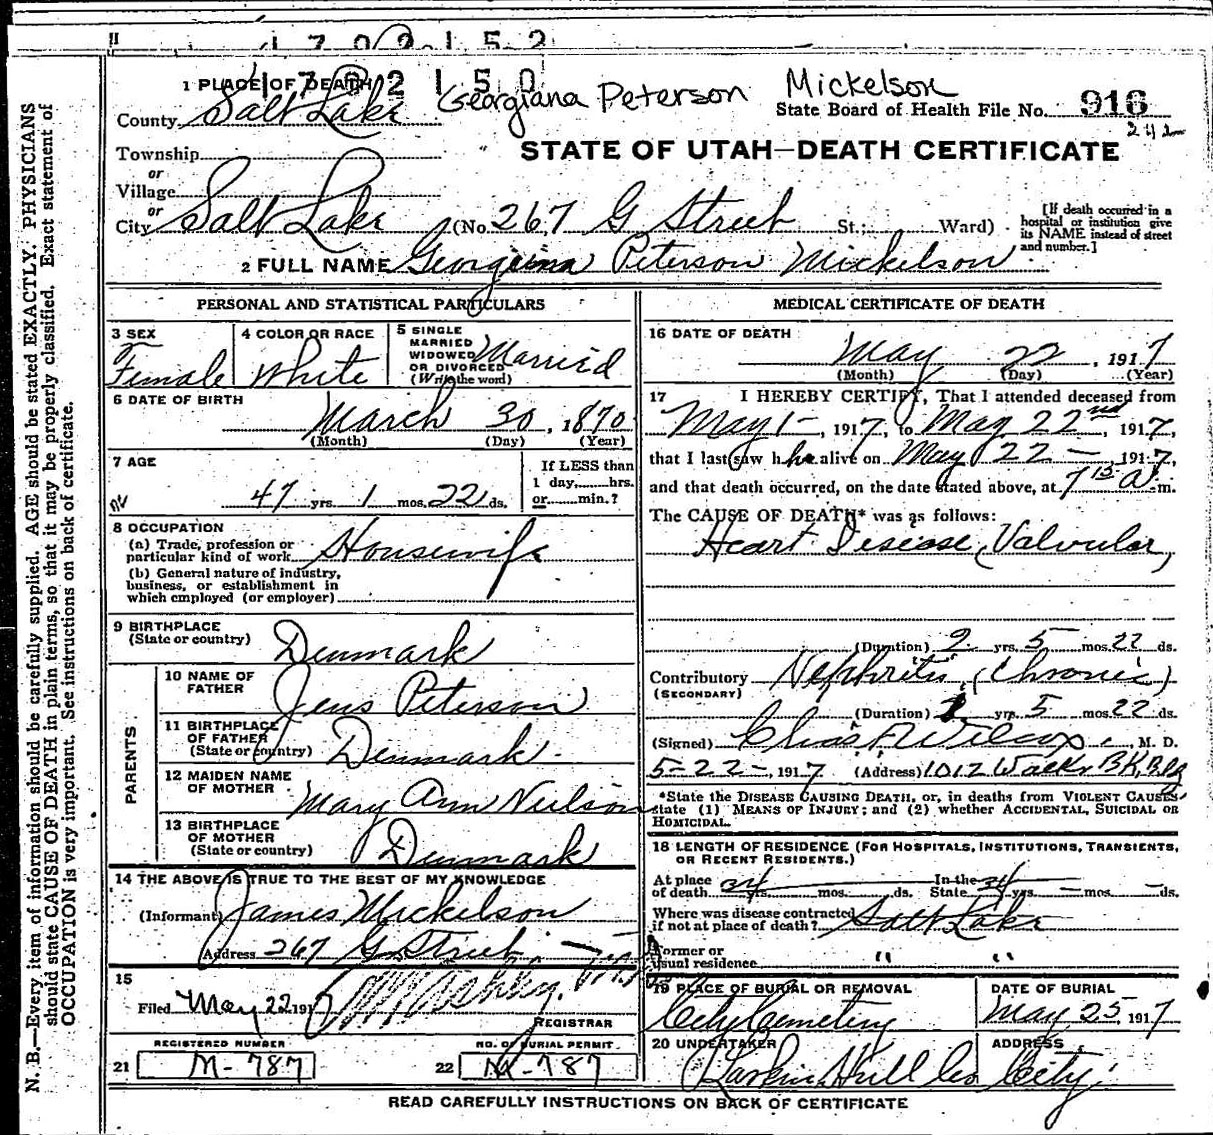 1702152
1702150
1 PLACE OF DEATH
Georgiana Peterson Mickelson
County Salt Lake
State Board of Health File No. 916
242
Township
or
Village
or
STATE OF UTAH—DEATH CERTIFICATE
City Salt Lake (No. 267 G Street St.; Ward)
[If death occurred in a
hospital or institution give
its NAME instead of street
and number.]
2 FULL NAME Georgiana Peterson Mickelson
PERSONAL AND STATISTICAL PARTICULARS
3 SEX
Female
4 COLOR OR RACE
White
5 SINGLE
MARRIED
WIDOWED
OR DIVORCED
(Write the word)
Married
6 DATE OF BIRTH
March 30, 1870
(Month) (Day) (Year)
7 AGE
47 yrs. 1 mos. 22 ds.
If LESS than
1 day, hrs.
or min.?
8 OCCUPATION
(a) Trade, profession or
particular kind of work Housewife
(b) General nature of industry,
business, or establishment in
which employed (or employer)
9 BIRTHPLACE
(State or country) Denmark
PARENTS
10 NAME OF
FATHER Jens Peterson
11 BIRTHPLACE
OF FATHER
(State or country) Denmark
12 MAIDEN NAME
OF MOTHER Mary Ann Neilson
13 BIRTHPLACE
OF MOTHER
(State or country) Denmark
14 THE ABOVE IS TRUE TO THE BEST OF MY KNOWLEDGE
(Informant) James Mickelson
Address 267 G Street
15
Filed May 22 1917
REGISTRAR
REGISTERED NUMBER
21 M-787
NO. OF BURIAL PERMIT
22 M-787
MEDICAL CERTIFICATE OF DEATH
16 DATE OF DEATH
May 22, 1917
(Month) (Day) (Year)
17 I HEREBY CERTIFY, That I attended deceased from
May 1-, 1917, to May 22nd, 1917,
that I last saw her alive on May 22-, 1917,
and that death occurred, on the date stated above, at 7 15 A m.
The CAUSE OF DEATH* was as follows:
Heart Disease (Valvular)
(Duration) 2 yrs. 5 mos. 22 ds.
Contributory Nephritis (Chronic)
(SECONDARY)
(Duration) yrs. 5 mos. 22 ds.
(Signed) Chas. F. Wilcox, M. D.
5-22-, 1917 (Address) 1012 Walker Bk. Bldg
*State the DISEASE CAUSING DEATH, or, in deaths from VIOLENT CAUSES,
state (1) MEANS OF INJURY; and (2) whether ACCIDENTAL, SUICIDAL OR
HOMICIDAL.
18 LENGTH OF RESIDENCE (FOR HOSPITALS, INSTITUTIONS, TRANSIENTS,
OR RECENT RESIDENTS.)
At place
of death 34 yrs. mos. ds. In the
State 34 yrs. - mos. - ds.
Where was disease contracted
if not at place of death? Salt Lake
Former or
usual residence " "
19 PLACE OF BURIAL OR REMOVAL
City Cemetery
DATE OF BURIAL
May 25, 1917
20 UNDERTAKER
Larkin Hull Co
ADDRESS
City
READ CAREFULLY INSTRUCTIONS ON BACK OF CERTIFICATE
N. B.—Every item of information should be carefully supplied. AGE should be stated EXACTLY. PHYSICIANS
should state CAUSE OF DEATH in plain terms, so that it may be properly classified. Exact statement of
OCCUPATION is very important. See instructions on back of certificate.